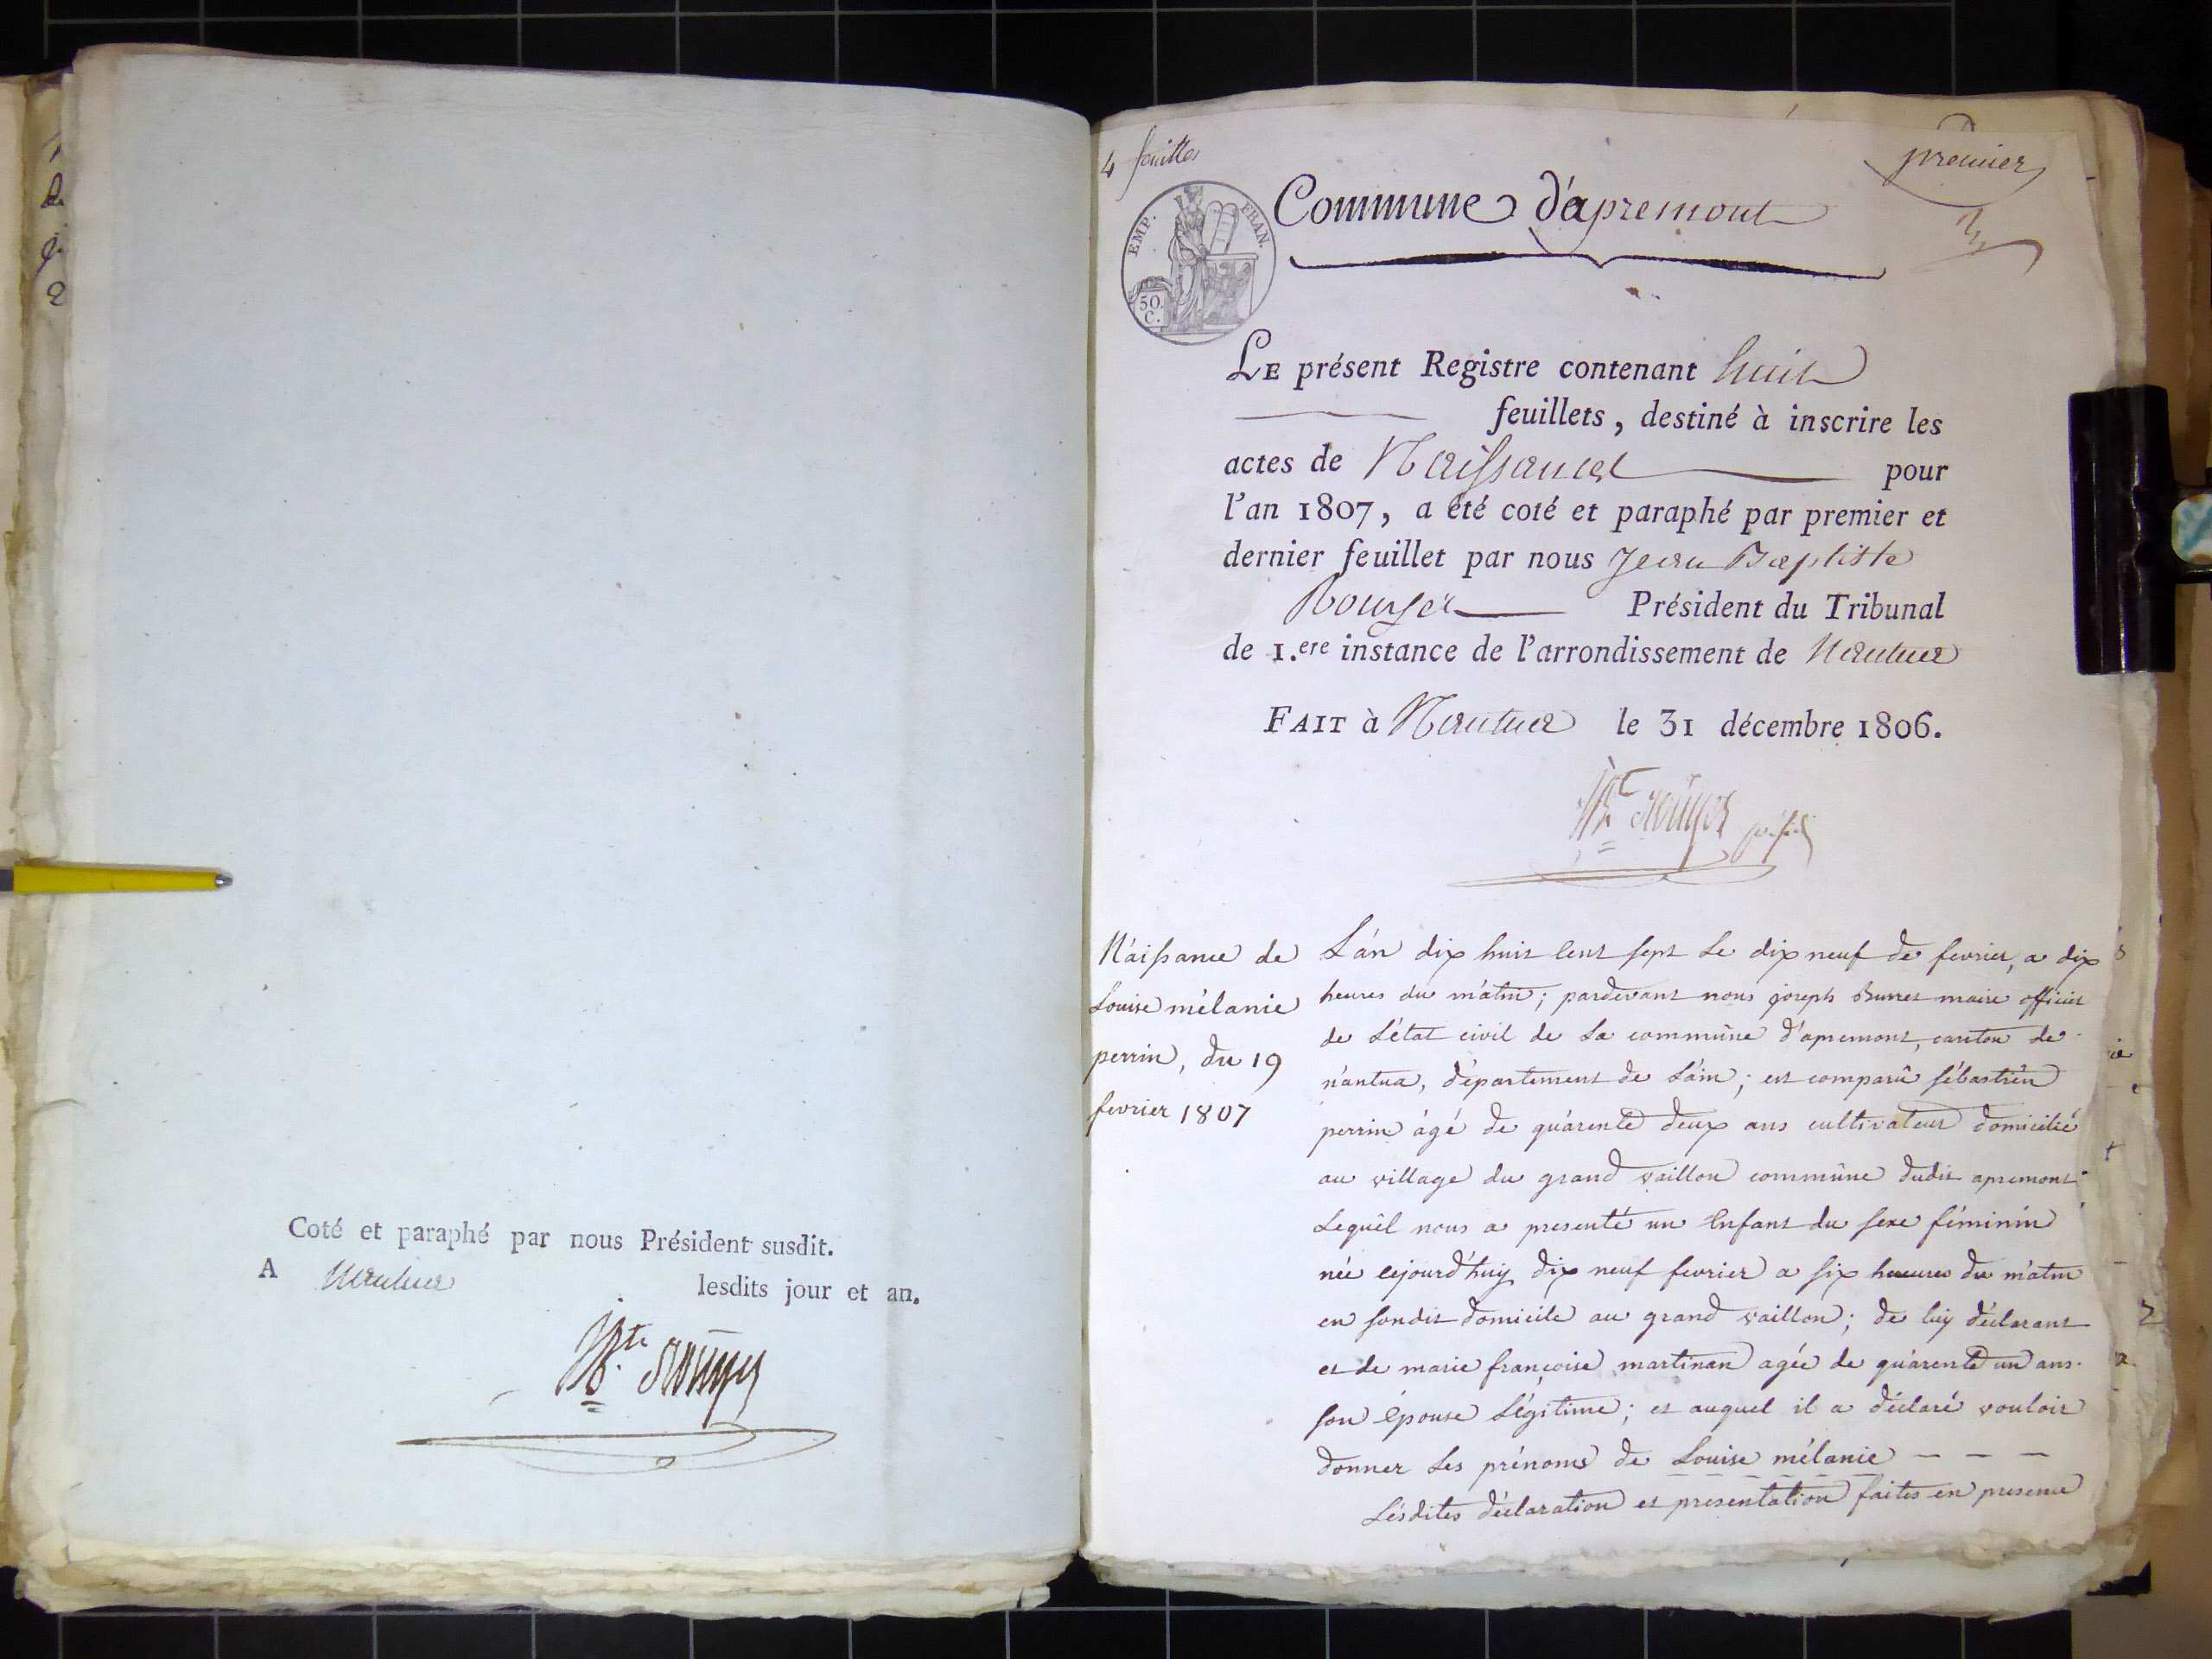 Coté et paraphé par nous Président susdit.
A Nantua lesdits jour et an.
Jn Bte Rouyer
4 feuilles
premier
EMP. FRAN.
50 C.
Commune d'apremont
LE présent Registre contenant huit
feuillets, destiné à inscrire les
actes de Naissances pour
l'an 1807, a été coté et paraphé par premier et
dernier feuillet par nous Jean Baptiste
Rouyer Président du Tribunal
de 1.ere instance de l'arrondissement de Nantua
FAIT à Nantua le 31 décembre 1806.
Naissance de
Louise mélanie
perrin, du 19
fevrier 1807
L'an dix huit cent sept le dix neuf de fevrier, a dix
heures du matin; pardevant nous joseph maire officier
de l'état civil de la commune d'apremont, canton de
nantua, département de l'ain; est comparû sébastien
perrin âgé de quarente deux ans cultivateur domicilié
au village du grand vaillon commune dudit apremont
Lequel nous a presenté un Enfant du sexe féminin
née cejourd'huy dix neuf fevrier a six heures du matin
en sondit domicile au grand vaillon; de luy déclarant
et de marie françoise martinan agée de quarente un ans
son épouse légitime; et auquel il a déclaré vouloir
donner les prénoms de Louise mélanie - - -
Lesdites déclaration et presentation faites en presence